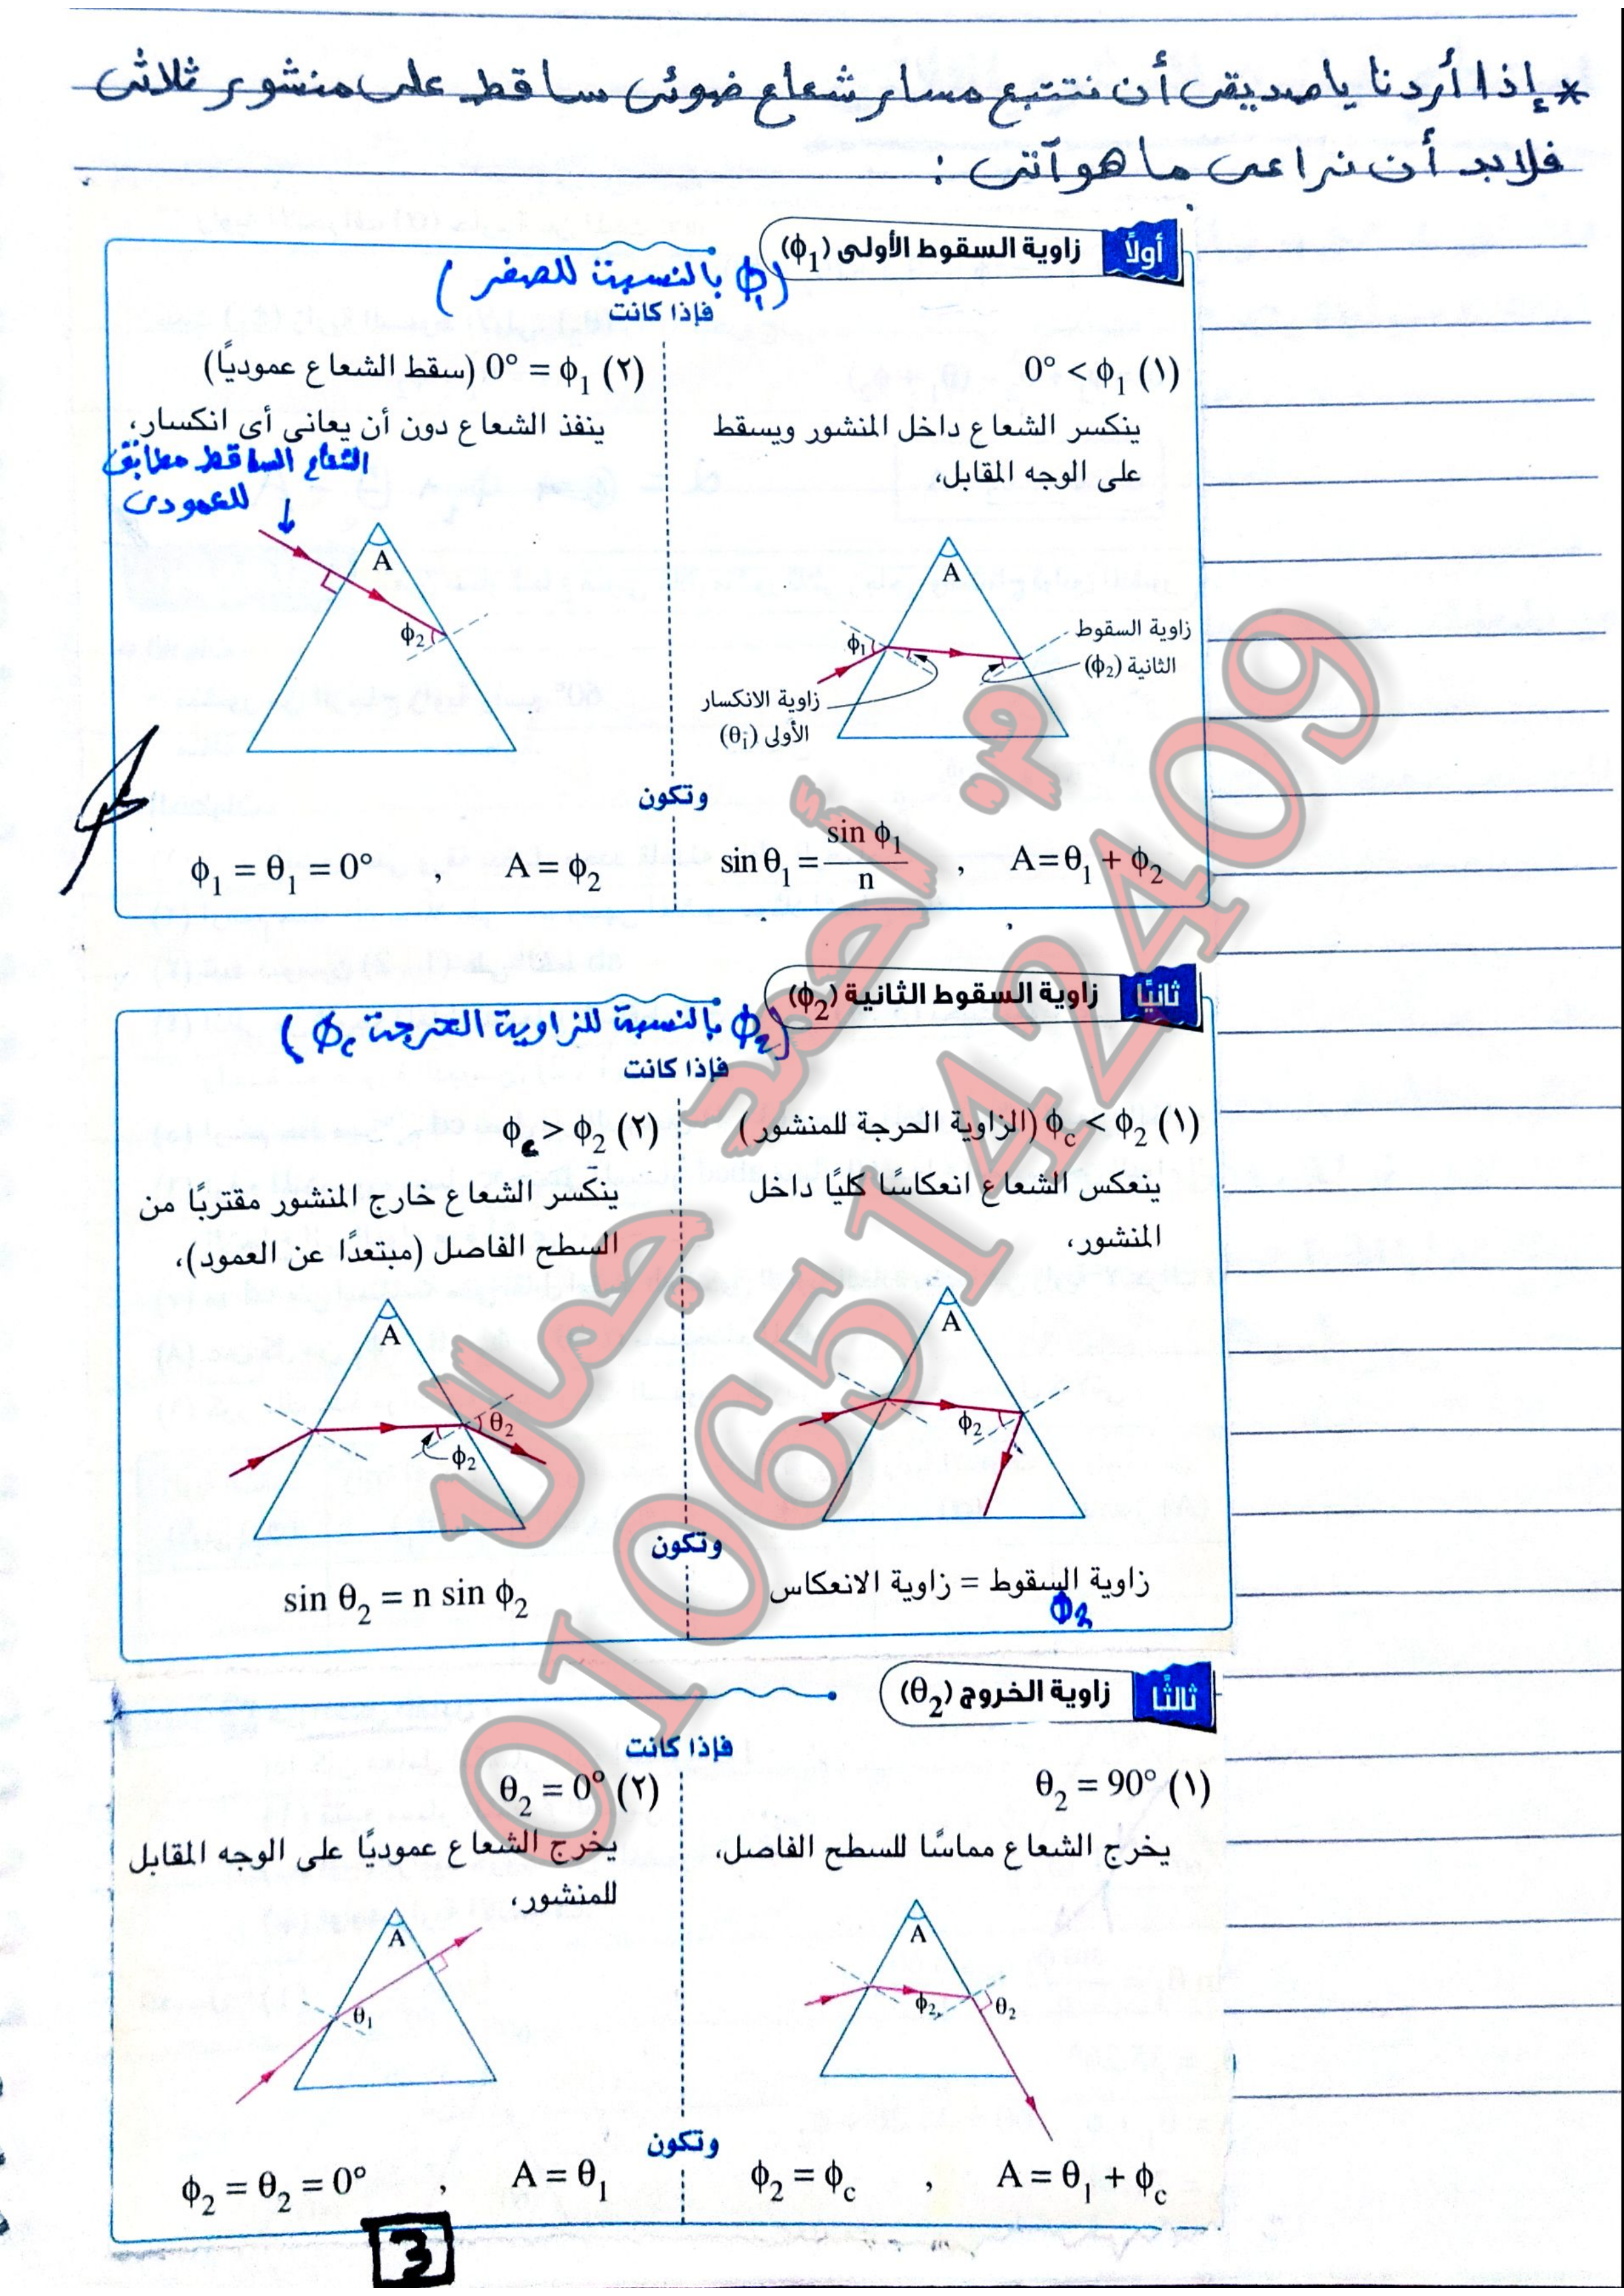 * إذا أردنا يا صديقى أن نتتبع مسار شعاع ضوئى ساقط على منشور ثلاثى
فلابد أن نراعى ما هو آتى :
أولاً زاوية السقوط الأولى (ϕ₁)
(ϕ₁ بالنسبة للصفر)
فإذا كانت
(١) ϕ₁ > 0°
ينكسر الشعاع داخل المنشور ويسقط
على الوجه المقابل،
A
ϕ₁
زاوية السقوط
الثانية (ϕ₂)
زاوية الانكسار
الأولى (θ₁)
(٢) ϕ₁ = 0° (سقط الشعاع عموديًا)
ينفذ الشعاع دون أن يعانى أى انكسار،
الشعاع الساقط مطابق
للعمودى
A
ϕ₂
وتكون
A = θ₁ + ϕ₂ , sin θ₁ = sin ϕ₁ / n
A = ϕ₂ , ϕ₁ = θ₁ = 0°
ثانيًا زاوية السقوط الثانية (ϕ₂)
(ϕ₂ بالنسبة للزاوية الحرجة ϕc)
فإذا كانت
(١) ϕc < ϕ₂ (الزاوية الحرجة للمنشور)
ينعكس الشعاع انعكاسًا كليًا داخل
المنشور،
A
ϕ₂
(٢) ϕc > ϕ₂
ينكسر الشعاع خارج المنشور مقتربًا من
السطح الفاصل (مبتعدًا عن العمود)،
A
θ₂
ϕ₂
وتكون
زاوية السقوط = زاوية الانعكاس
ϕ₂
sin θ₂ = n sin ϕ₂
ثالثًا زاوية الخروج (θ₂)
فإذا كانت
(١) θ₂ = 90°
يخرج الشعاع مماسًا للسطح الفاصل،
A
ϕ₂
θ₂
(٢) θ₂ = 0°
يخرج الشعاع عموديًا على الوجه المقابل
للمنشور،
A
θ₁
وتكون
A = θ₁ + ϕc , ϕ₂ = ϕc
A = θ₁ , ϕ₂ = θ₂ = 0°
3
م. أحمد جمال
01065142409